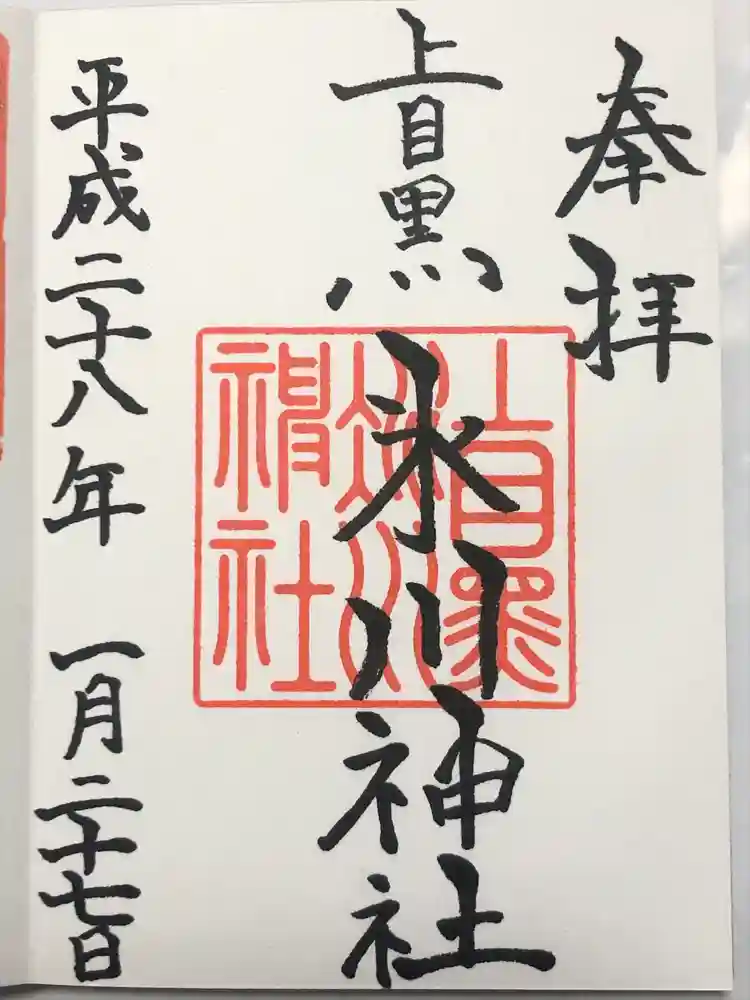 奉拝
上目黒氷川神社
上目黒氷川神社
平成二十八年 一月二十七日